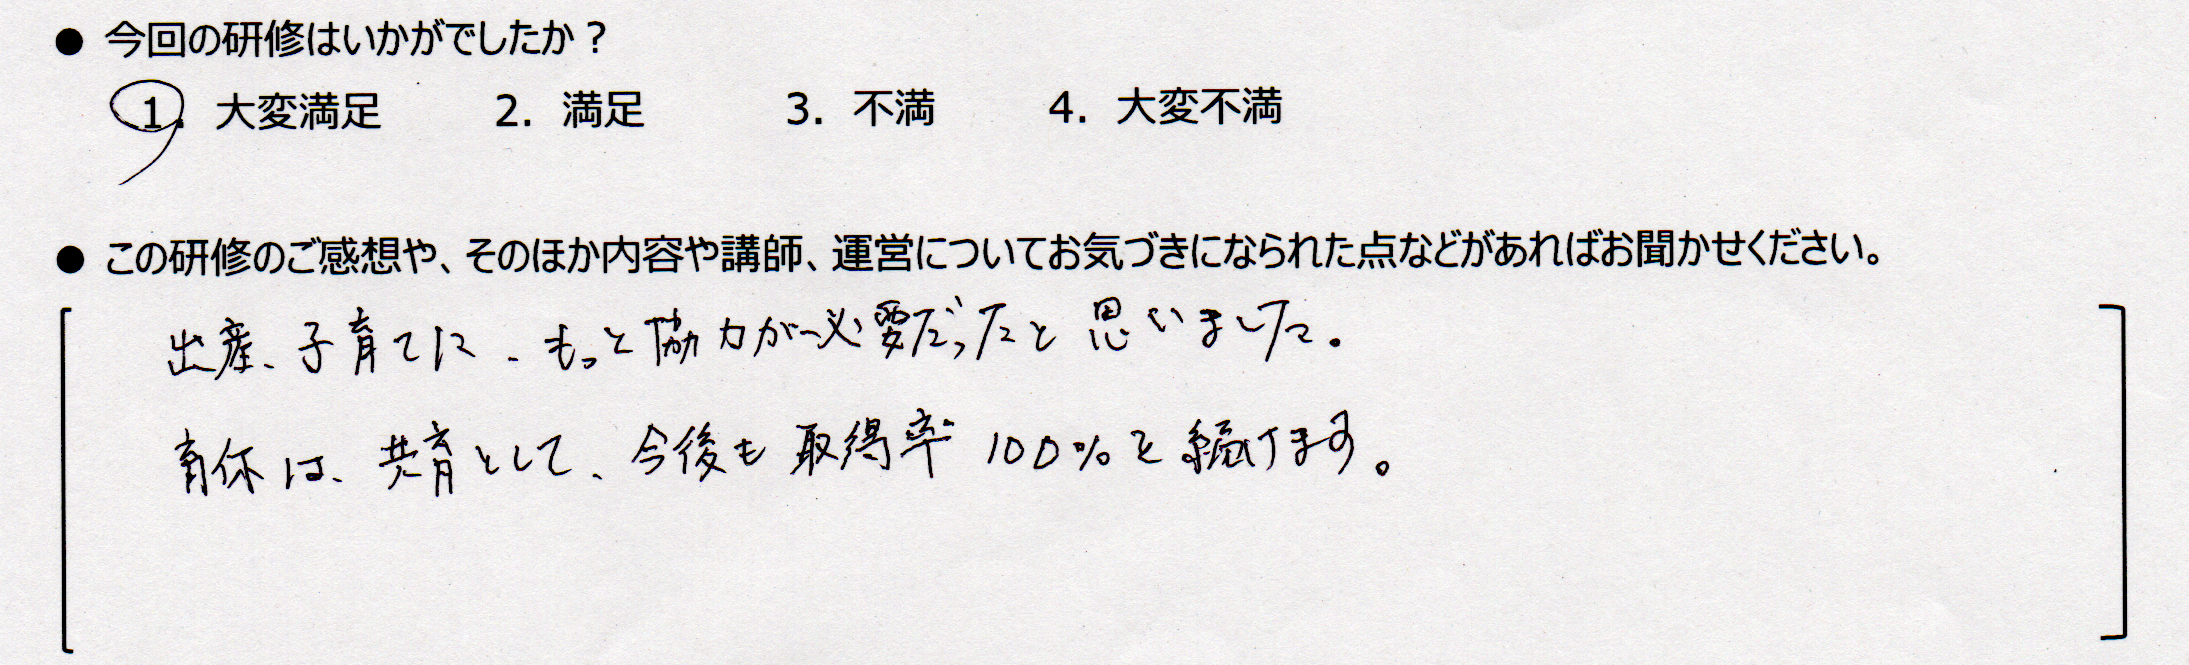 ● 今回の研修はいかがでしたか？
1. 大変満足 2. 満足 3. 不満 4. 大変不満
● この研修のご感想や、そのほか内容や講師、運営についてお気づきになられた点などがあればお聞かせください。
出産、子育てに、もっと協力が必要だったと思いました。
育休は、共育として、今後も取得率100%を続けます。